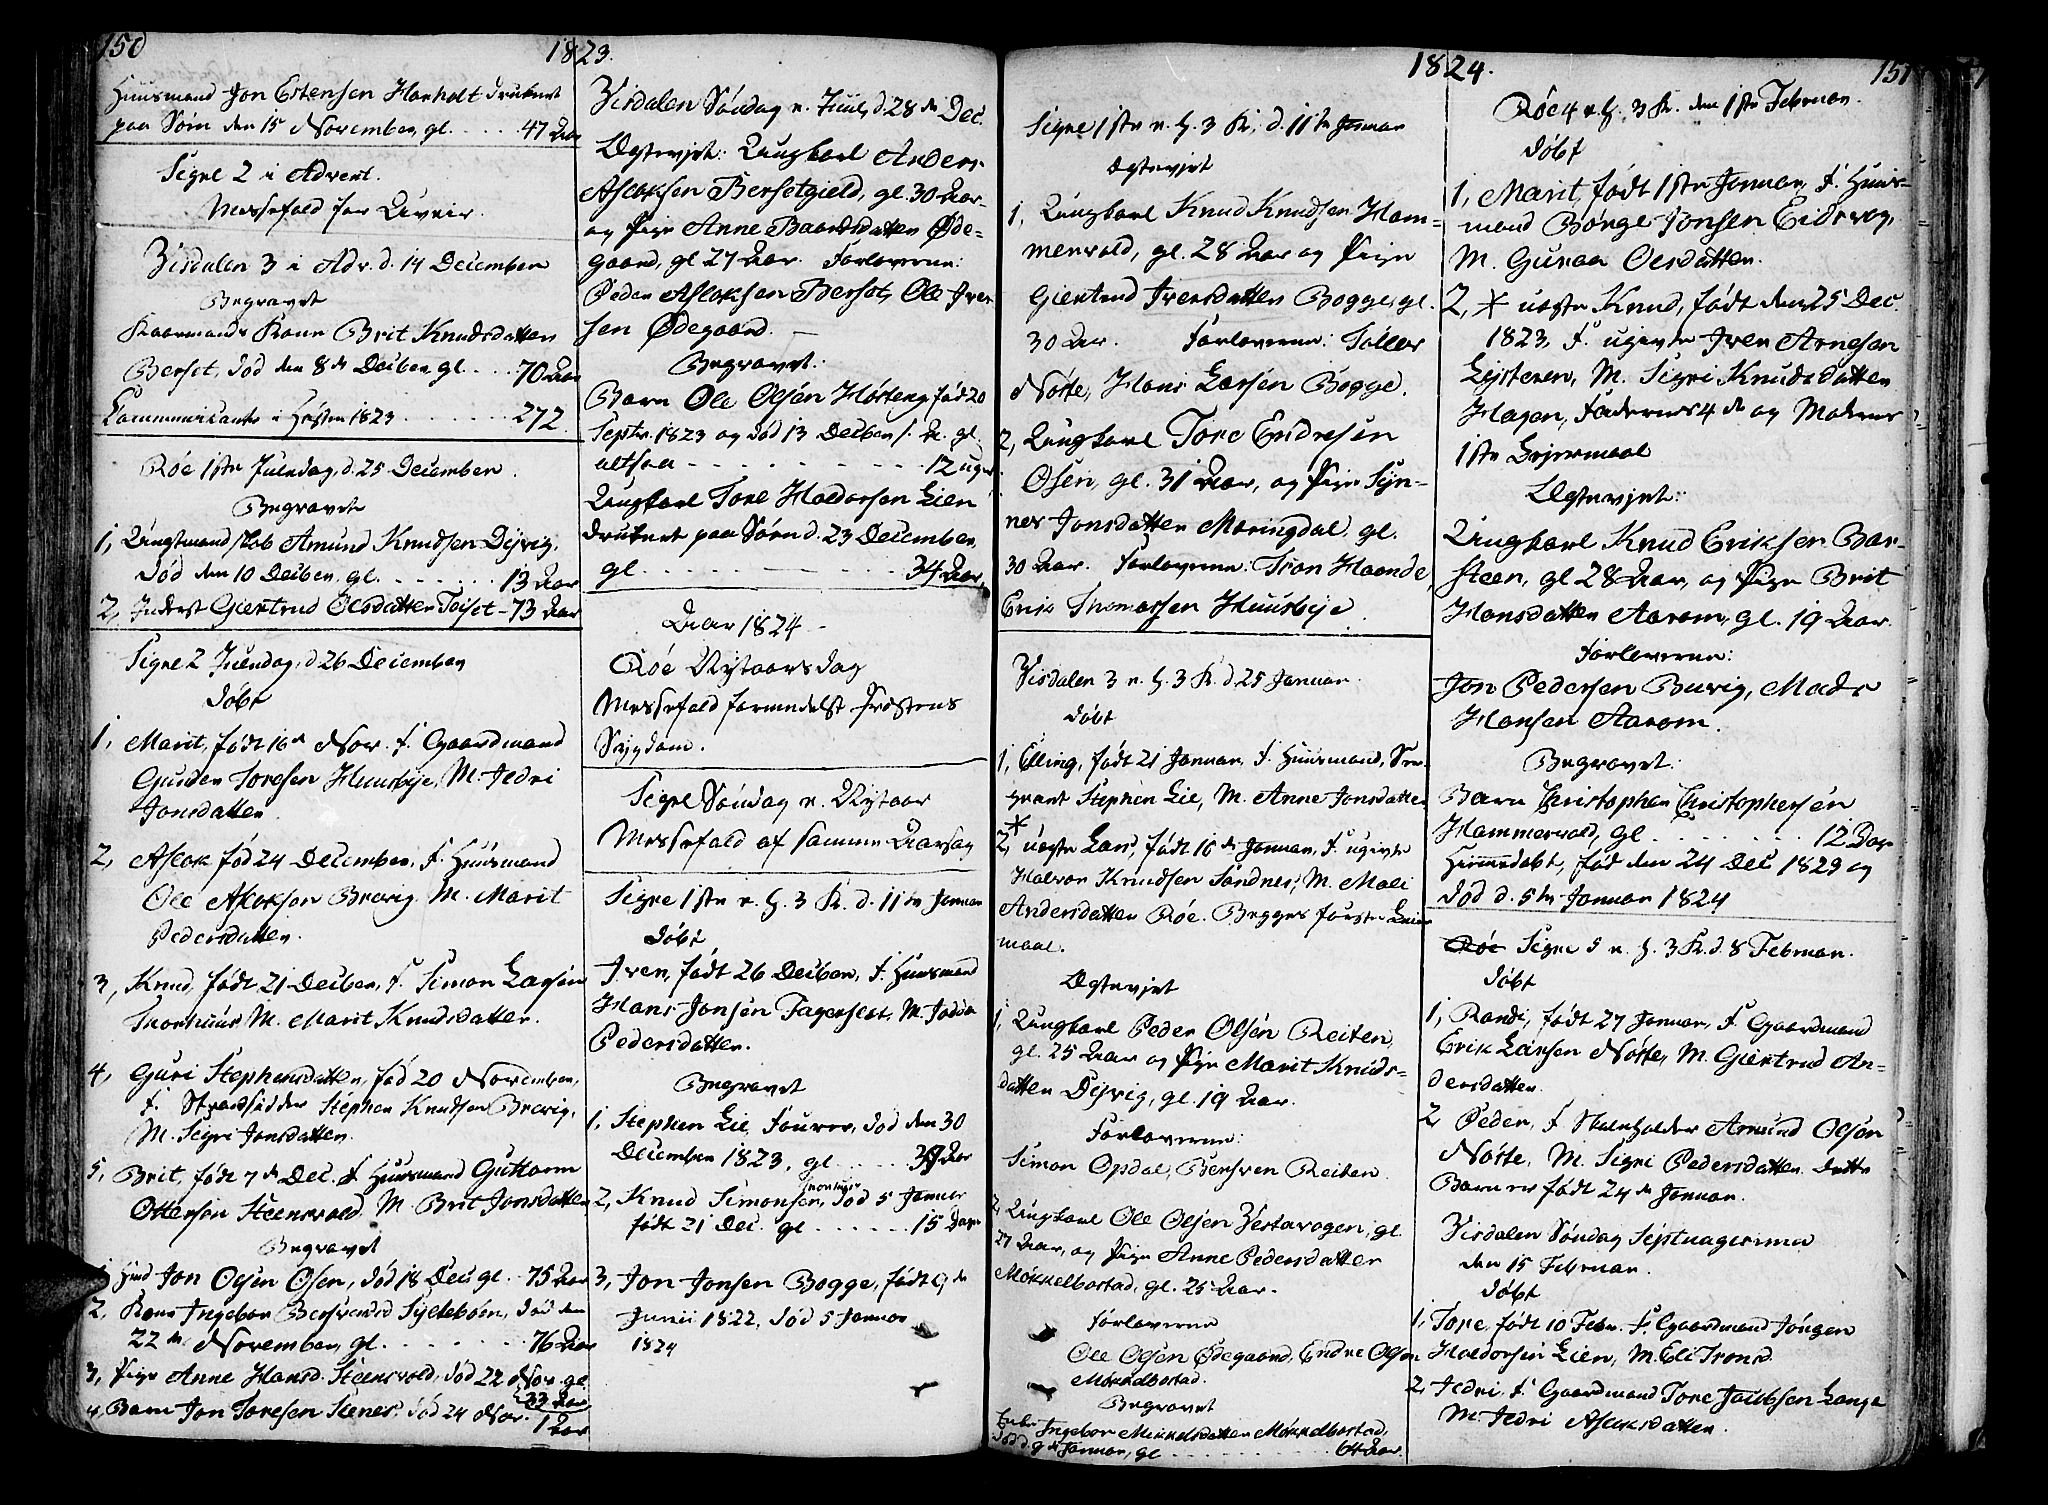 150
1823.
Huusmand Jon Estensen Haaholt druknet
paa Søen den 15 November, gl. . . . . 47 Aar
Signe 2 i Advent.
Messefald for Uveir.
Visdalen 3 i Adv. d. 14 December
Begravet
Kaarmands Kone Brit Knudsdatter
Berset, død den 8de Decber, gl. . . . 70 Aar
Communicantes i Høsten 1823 . . . . . . 272.
Røe 1ste Juledag, d. 25 December.
Begravet
1, Ungtmandskab Amund Knudsen Dyrvig,
død den 10 Decber, gl. . . . . . . 13 Aar
2, Inderst Giertrud Olsdatter Toiset - 73 Aar
Signe 2 Juledag, d. 26 December
Døbt
1, Marit, født 16de Nov. F. Gaardmand
Gunder Toresen Huusbye, M. Jedri
Jonsdatter.
2, Aslak fød 24 December, F. Huusmand
Ole Aslaksen Brevig. M. Marit
Pedersdatter.
3, Knud, født 21 Decber, F. Simon Larsen
Snorhuus M. Marit Knudsdatter.
4, Guri Stephensdatter, fød 20 November,
F. Strandsidder Stephen Knudsen Brevig,
M. Sigri Jonsdatter.
5, Brit, født 7de Dec. F. Huusmand Guttorm
Ottersen Steensvold. M. Brit Jonsdatter
Begravet
1, Jon Olsen Osen, død 18 Dec gl. . . 75 Aar
2, Kone Ingebor Bersvendsd Syltebøen, død den
22de November, gl. . . . . . . . 76 Aar
3, Pige Anne Hansd. Steensvold, død 22 Nov. gl.
33 Aar
4, Barn Jon Toresen Stenes, død 24 Nov. 1 Aar
Visdalen Søndag e. Juul, d. 28de Dec.
Ægteviet: Ungkarl Anders
Aslaksen Bersetgield, gl. 30 Aar
og Pige Anne Baardsdatter Øde-
gaard, gl 27 Aar. Forloverne:
Peder Aslaksen Berset, Ole Iver
sen Ødegaard. —
Begravet:
Barn Ole Olsen Hørteng fød 20
Septr. 1823 og død 13 Decber s. A. gl.
altsaa - - - - - - - - - 12 uger
Ungkarl Tore Haldorsen Lien
druknet paa Søen d. 23 December,
gl . . . . . . . . . . . 34 Aar,
Aar 1824
Røe Nytaarsdag
Messefald formedelst Præstens
Sygdom.
Signe Søndag e. Nytaar
Messefald af samme Aarsag
Signe 1ste e. H. 3 K. d. 11te Januar
Døbt
Iver, født 26 Decber, F. Huusmand
Hans Jonsen Fagerslet, M.
Pedersdatter.
Begravet
1, Stephen Lie, Fourer, død den 30
December 1823, gl . . . . . 39 Aar
2, Knud Simonsen, Snorhuus død 5 Januar
født 21 Dec. gl . . . . . . 15 Dage
3, Jon Jonsen Bogge, født 9de
Junii 1822, død 5 Januar
1824
1824.
151
Signe 1ste e. H. 3 K. d. 11te Januar
Ægteviet
1, Ungkarl Knud Knudsen Ham-
mervold, gl. 28 Aar og Pige
Giertrud Iversdatter Bogge, gl.
30 Aar. Forloverne:
Nøste, Hans Larsen Bogge.
2, Ungkarl Tore Endresen
Osen, gl. 31 Aar, og Pige Syn-
nev Jonsdatter Meringdal, gl.
30 Aar. Forloverne: Tron Haande,
Erik Thomassen Huusbye.
Visdalen 3 e. H. 3 K. d. 25 Januar.
Døbt
1, Elling, født 21 Januar, F. Huusmand, Ser-
geant Stephen Lie, M. Anne Jonsdatter
2, * uægte Lars, født 16de Januar, F. ugivte
Halvor Knudsen Sandnes, M. Mali
Andersdatter Røe. Begges første Leier
maal.
Ægteviet
1, Ungkarl Peder Olsen Reiten,
gl. 25 Aar og Pige Marit Knuds-
datter Dyrvig, gl. 19 Aar.
Forloverne:
Simon Opdal, Bersven Reiten
2, Ungkarl Ole Olsen Vestavogen, gl.
27 Aar, og Pige Anne Pedersdatter
Møkkelbostad, gl. 25 Aar.
Forloverne
Ole Olsen Ødegaard, Endre Olsen
Møkkelbostad.
Begravet
Enke Ingebor Mikkelsdatter Møkkelbostad,
død d. 9de Januar, gl . . . . . . . . 64 Aar.
Røe 4 e. H. 3 K. den 1ste Februar.
Døbt
1, Marit, født 1ste Januar, F. Huus-
mand Børge Jonsen Eidsvog,
M. Guraa Olsdatter.
2, * uægte Knud, født den 25 Dec.
1823, F. ugivte Iver Arnesen
Lysteren, M. Sigri Knudsdatter
Hagen, Faderens 4de og Moderens
1ste Leiermaal
Ægteviet:
Ungkarl Knud Eriksen Bar-
steen, gl. 28 Aar, og Pige Brit
Hansdatter Aarom, gl. 19 Aar.
Forloverne:
Jon Pedersen Buvig, Mads
Hansen Aarom.
Begravet:
Barn Christopher Christophersen
Hammervold, gl . . . . . . . 12 Dage
Hiemmedøbt, fød den 24 Dec 1823 og
død d. 5te Januar 1824
Røe Signe 5 e. H. 3 K. d. 8 Februar.
Døbt
1, Randi, født 27 Januar, F. Gaardmand
Erik Larsen Nøste, M. Giertrud An-
dersdatter.
2, Peder, F. Skoleholder Amund Olsen
Nøste, M. Sigri Pedersdatter. Dette
Barn er født 24de Januar.
Visdalen Søndag Septuagesima
den 15 Februar.
Døbt
1, Tore, født 10 Febr. F. Gaardmand Jørgen
Haldorsen Lien, M. Eli Tronsd.
2, Jedri, F. Gaardmand Tore Jacobsen Lange
M. Jedri Aslaksdatter.